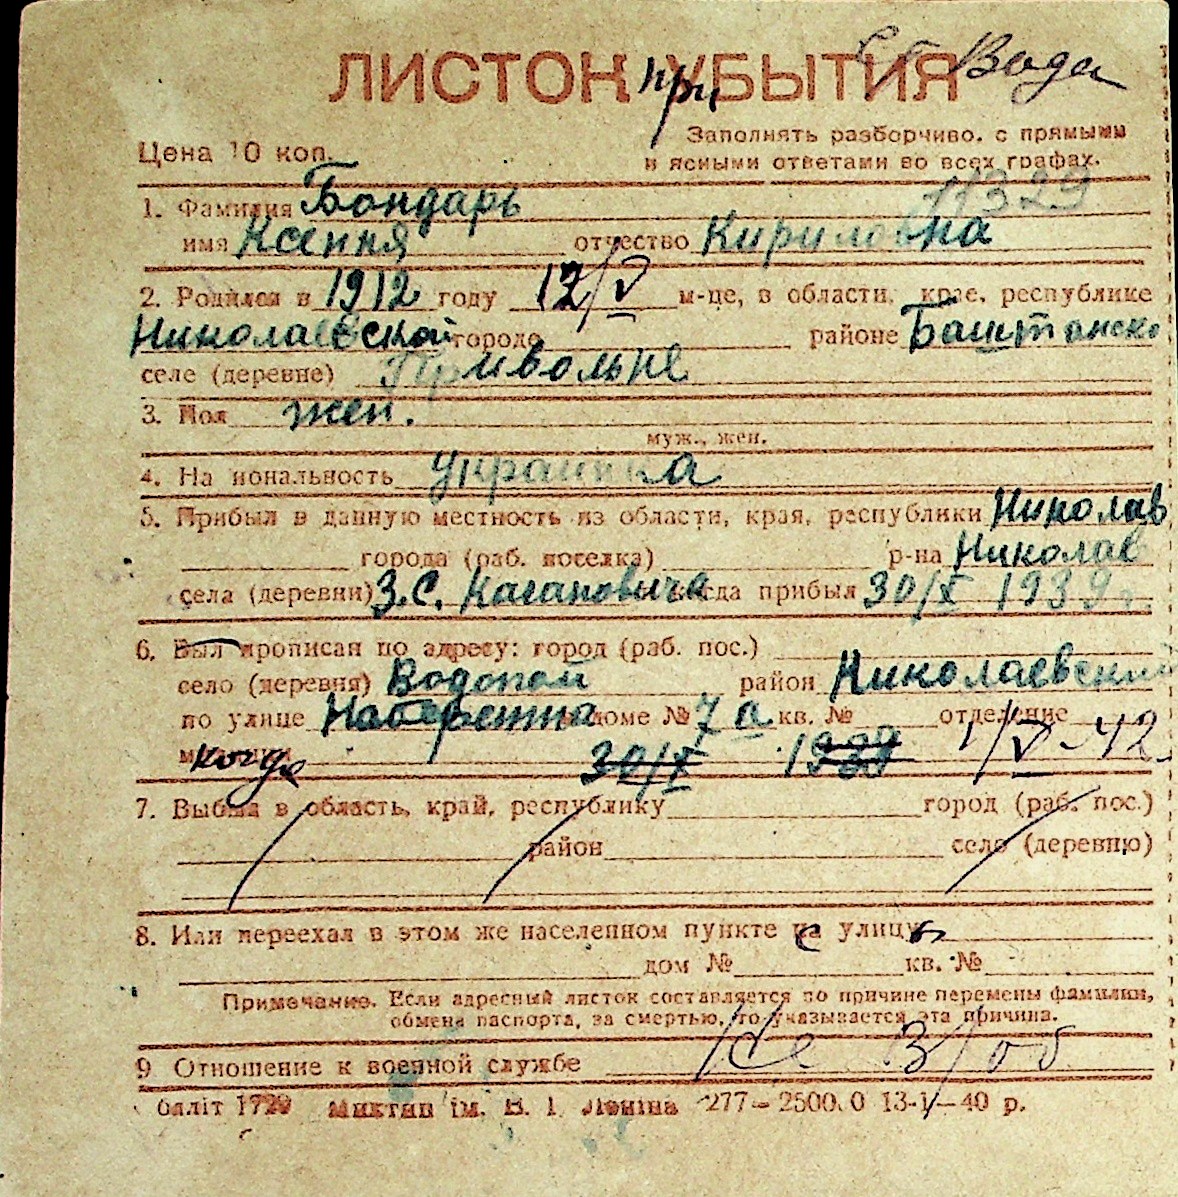 Вода
ЛИСТОК при УБЫТИЯ
Цена 10 коп.
Заполнять разборчиво. с прямыми
и ясными ответами во всех графах.
11329
1. Фамилия Бондарь
имя Ксения отчество Кириловна
2. Родился в 1912 году 12/V м-це, в области, крае, республике
Николаевской города районе Баштанско
селе (деревне) Привольне
3. Пол жен.
муж., жен.
4. Национальность украинка
5. Прибыл в данную местность из области, края, республики Николав
города (раб. поселка) р-на Николав
села (деревни) З.С. Кагановича когда прибыл 30/X 1939 г.
6. Был прописан по адресу: город (раб. пос.)
село (деревня) Водопой район Николаевский
по улице Набережна доме № 7 а кв. № отделение
милиции когда 30/X 1939 1/V-42
7. Выбыл в область, край, республику город (раб. пос.)
район село (деревню)
8. Или переехал в этом же населенном пункте на улицу
дом № кв. №
Примечание. Если адресный листок составляется по причине перемены фамилии,
обмена паспорта, за смертью, то указывается эта причина.
9. Отношение к военной службе не в/об
бліт 1729 Миктип ім. В. І. Леніна 277—2500.0 13-І—40 р.